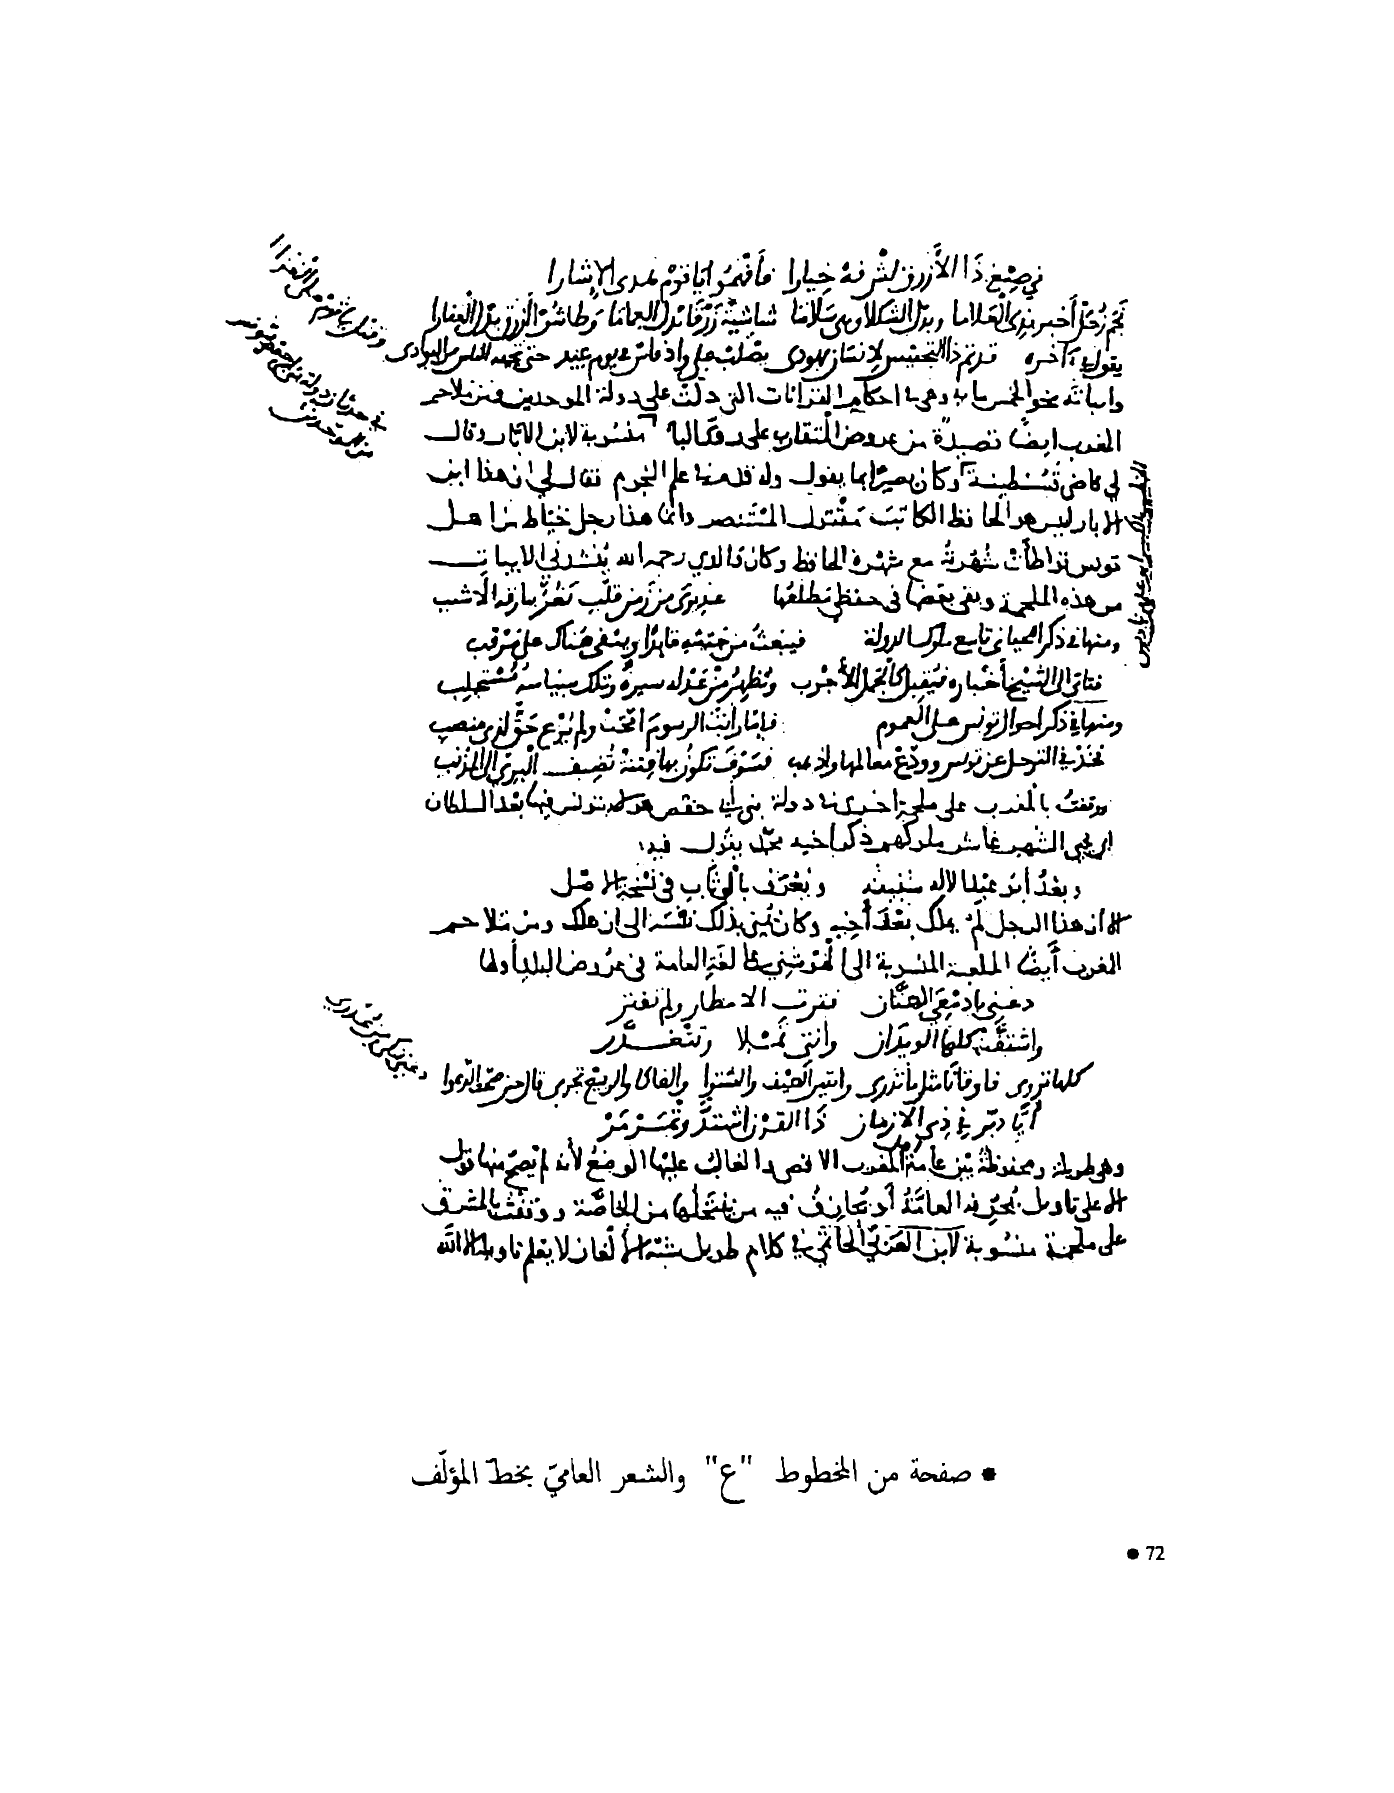 في صبغ ذا الأزرق لشرفه خيارا فافهموا يا قوم هذي الإشارا
نجم زحل أخبر بذي العلاما وبدل الشكلا وهي سلاما شاشية زرقا بدل العماما وطاشن ازرق بدل الغفارا
يقول في آخره قد تم ذا التجنيس لإنسان يهودي يصلب على واد فاس في يوم عيد حتى يجيه الناس من البوادي
وفتله يا قوم على الفقدا
وأبياته نحو الخمسماية وهي في أحكام القرانات التي دلت على دولة الموحدين ومن ملاحم
المغرب أيضًا قصيدة من عروض المتقارب على روي الباء منسوبة لابن الأبار وقال
في حدثان دولة بني أبي حفص بتونس
من الموحدين
لي قاضي قسنطينة وكان بصيرًا بما يقول وله قدم في علم النجوم فقال لي إن هذا ابن
الخطيب الكبير أبو علي بن باديس
الأبار ليس هو الحافظ الكاتب مقتول المستنصر وإنما هذا رجل خياط من أهل
تونس تواطأت شهرته مع شهرة الحافظ وكان والدي رحمه الله ينشدني الأبيات
من هذه الملحمة وبقي بعضها في حفظي مطلعها عذيري من زمن قلب يغر ببارقه الأشنب
ومنها في ذكر اللحياني تاسع ملوك الدولة فيبعث من جيشه قايدًا ويبقى هناك على مرقب
فتأتي إلى الشيخ أخباره فيقبل كالجمل الأجرب ويظهر من عدله سيرة وتلك سياسة مستجلب
ومنها في ذكر أحوال تونس على العموم فإما رأيت الرسوم امحت ولم يرع حق لذي منصب
فخذ في الترحل عن تونس وودع معالمها واذهب فسوف تكون بها فتنة تضيف البري إلى المذنب
ووقفت بالمغرب على ملحمة أخرى في دولة بني أبي حفص هؤلاء بتونس فيها بعد السلطان
أبي يحيى الشهير عاشر ملوكهم ذكر أخيه محمد يقول فيه
وبعد أبو عبد الإله شقيقه ويعرف بالوثاب في نسخة الأصل
إلا أن هذا الرجل لم يملك بعد أخيه وكان يمني بذلك نفسه إلى أن هلك ومن ملاحم
المغرب أيضًا الملعبة المنسوبة إلى الهوشني على لغة العامة في عروض البلد أولها
دعني يا دمعي الهتان فترت الأمطار ولم تفتر
واستقت كلها الويدان وانتي تملا وتتغدر
دعني نبكي من عذري
كلها تروى فاوقاتا مثل ما تدري وانتير الصيف والشتوا والفاكا والربيع تجري قال حين صحت الدعوا
أيا دير في ذي الازمان ذا القرن اشتد وتمرمر
وهي طويلة ومحفوظة بين عامة المغرب الأقصى والغالب عليها الوضع لأنه لم يصح منها قول
إلا على تأويل تحرفه العامة أو يحارف فيه من ينتحلها من الخاصة ووقفت بالمشرق
على ملحمة منسوبة لابن العربي الحاتمي في كلام طويل شبه الألغاز لا يعلم تأويله إلا الله
• صفحة من المخطوط "ع" والشعر العاميّ بخطّ المؤلّف
● 72